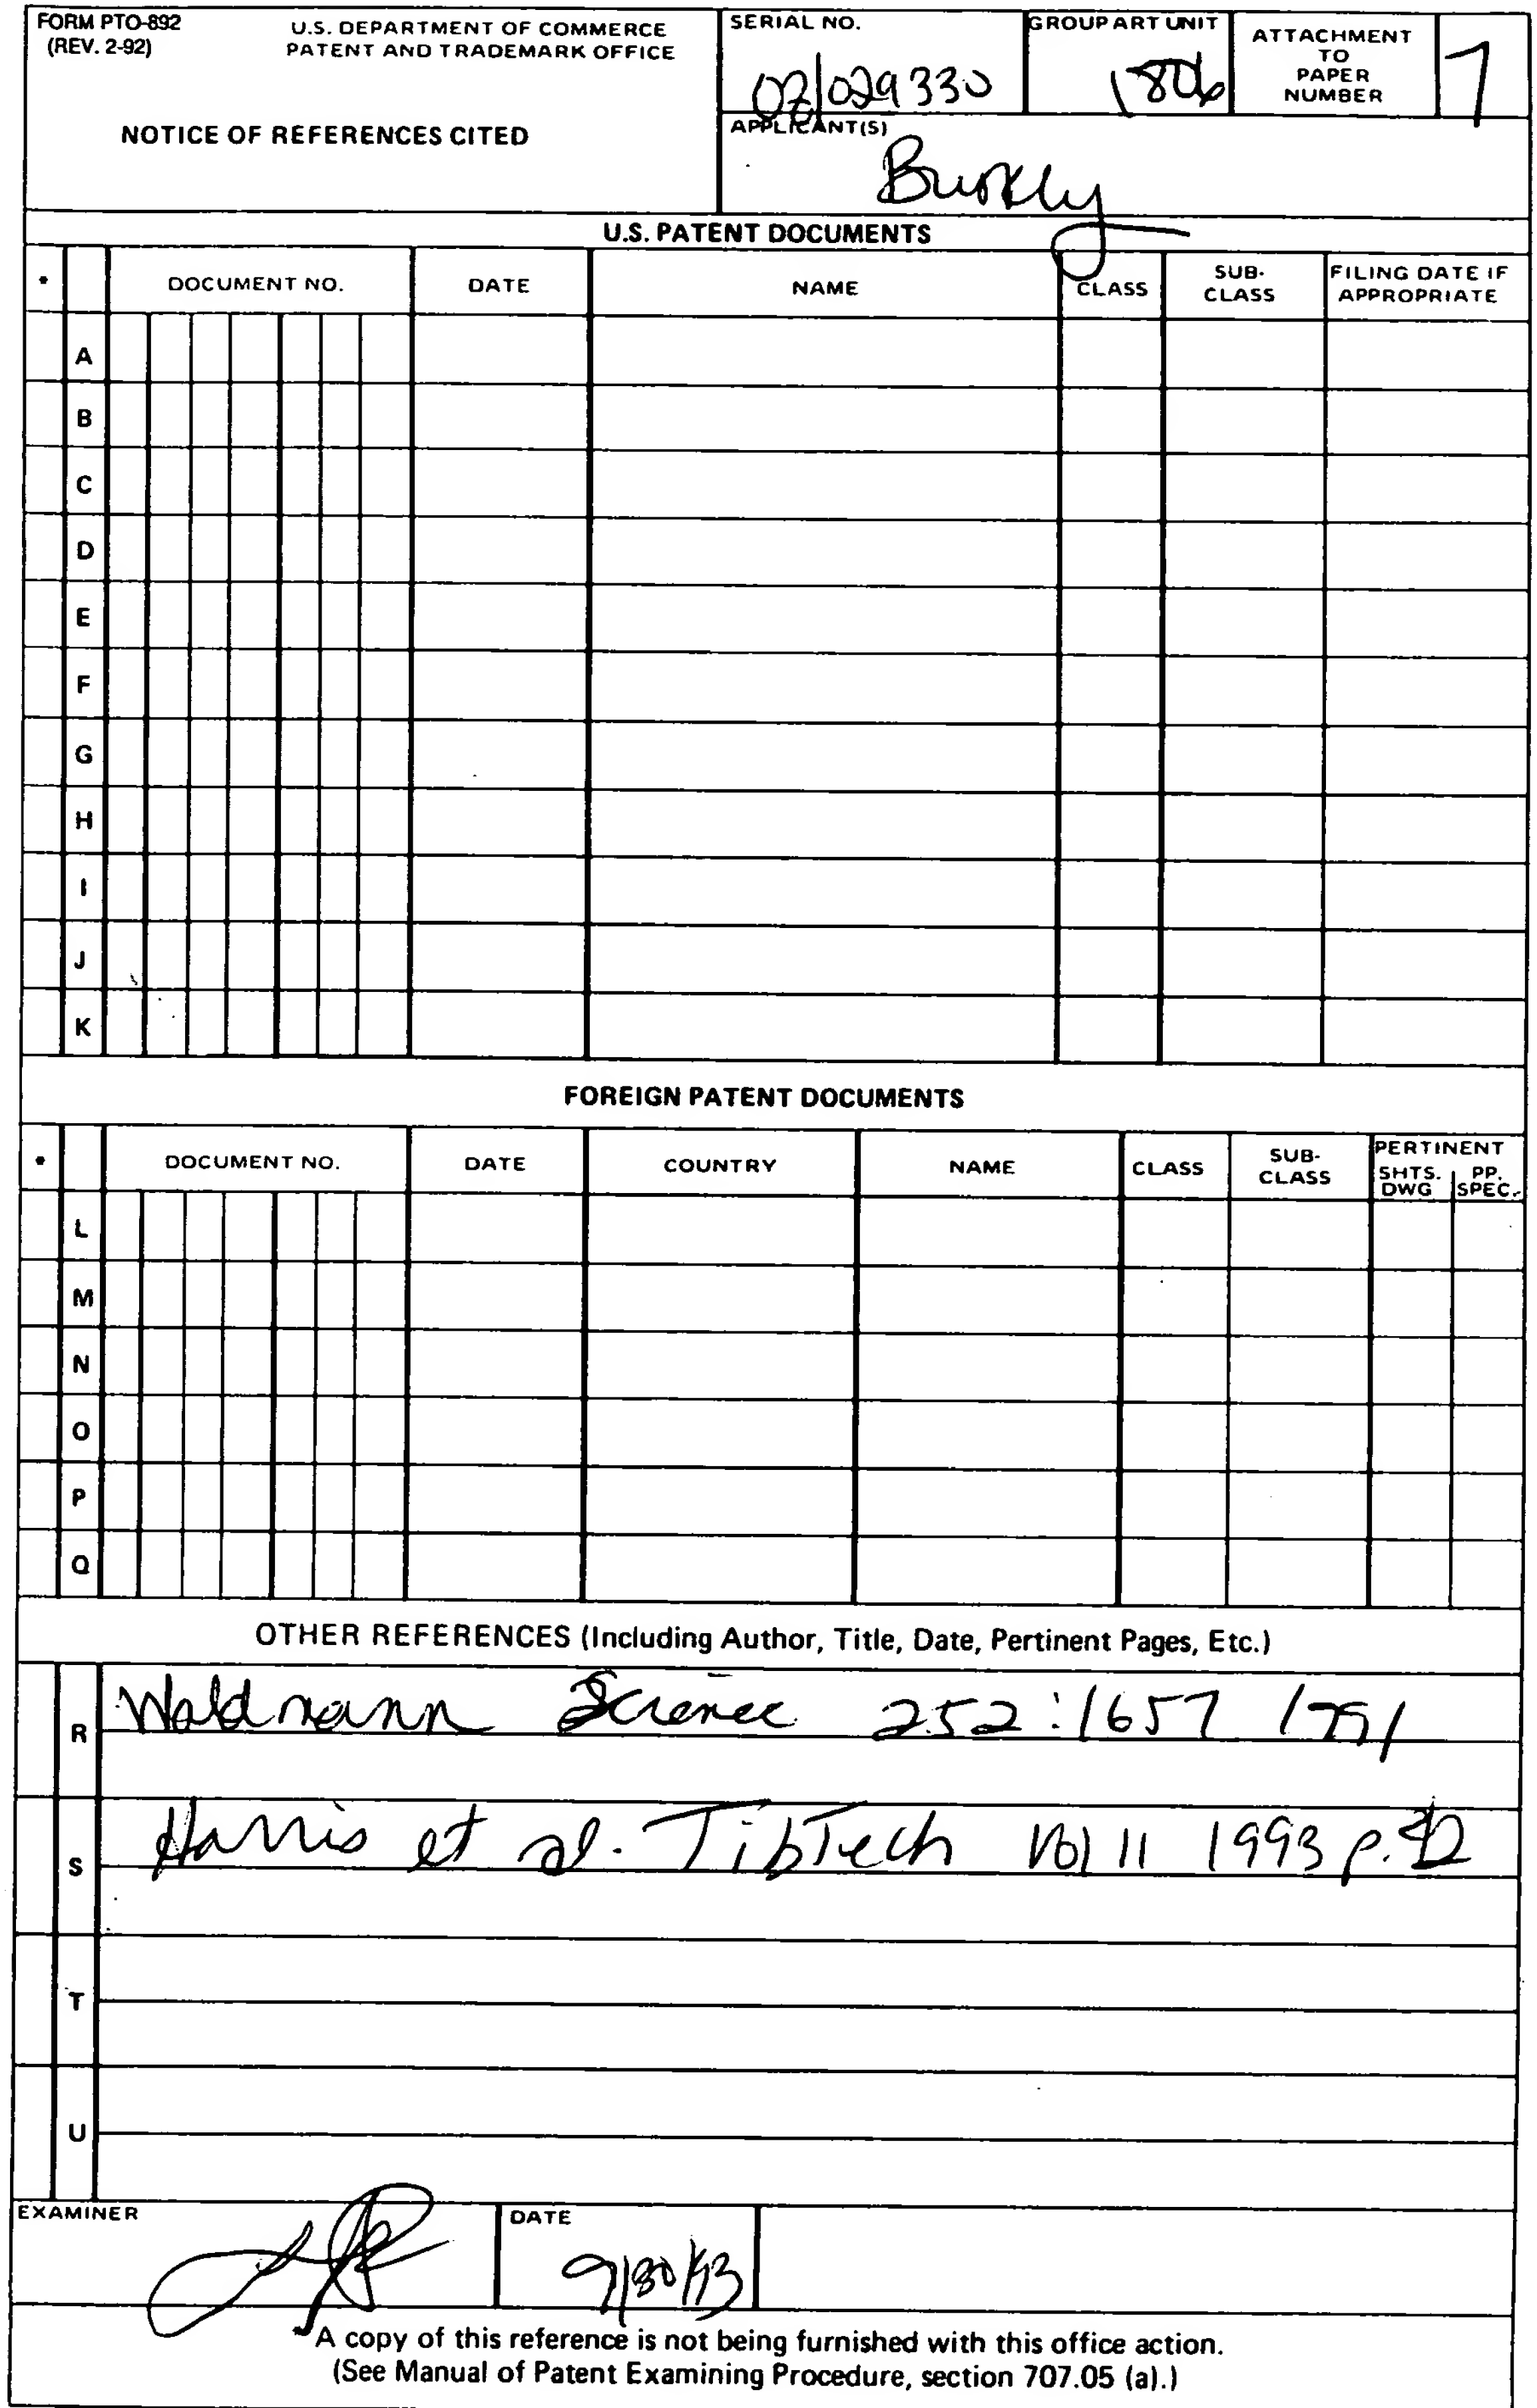 FORM PTO-892
(REV. 2-92)
U.S. DEPARTMENT OF COMMERCE
PATENT AND TRADEMARK OFFICE
NOTICE OF REFERENCES CITED
SERIAL NO.
08/029330
GROUP ART UNIT
1806
ATTACHMENT
TO
PAPER
NUMBER
7
APPLICANT(S)
Burkly
U.S. PATENT DOCUMENTS
* DOCUMENT NO. DATE NAME CLASS SUB-CLASS FILING DATE IF APPROPRIATE
A
B
C
D
E
F
G
H
I
J
K
FOREIGN PATENT DOCUMENTS
* DOCUMENT NO. DATE COUNTRY NAME CLASS SUB-CLASS PERTINENT SHTS. DWG PP. SPEC.
L
M
N
O
P
Q
OTHER REFERENCES (Including Author, Title, Date, Pertinent Pages, Etc.)
R Waldmann Science 252:1657 1991
S Harris et al. TibTech Vol 11 1993 p.
T
U
EXAMINER
DATE
9/30/93
* A copy of this reference is not being furnished with this office action.
(See Manual of Patent Examining Procedure, section 707.05 (a).)